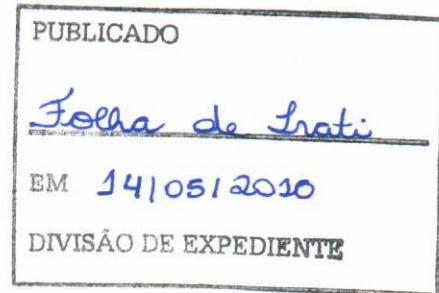 PUBLICADO
Folha de Irati
EM 14/05/2010
DIVISÃO DE EXPEDIENTE